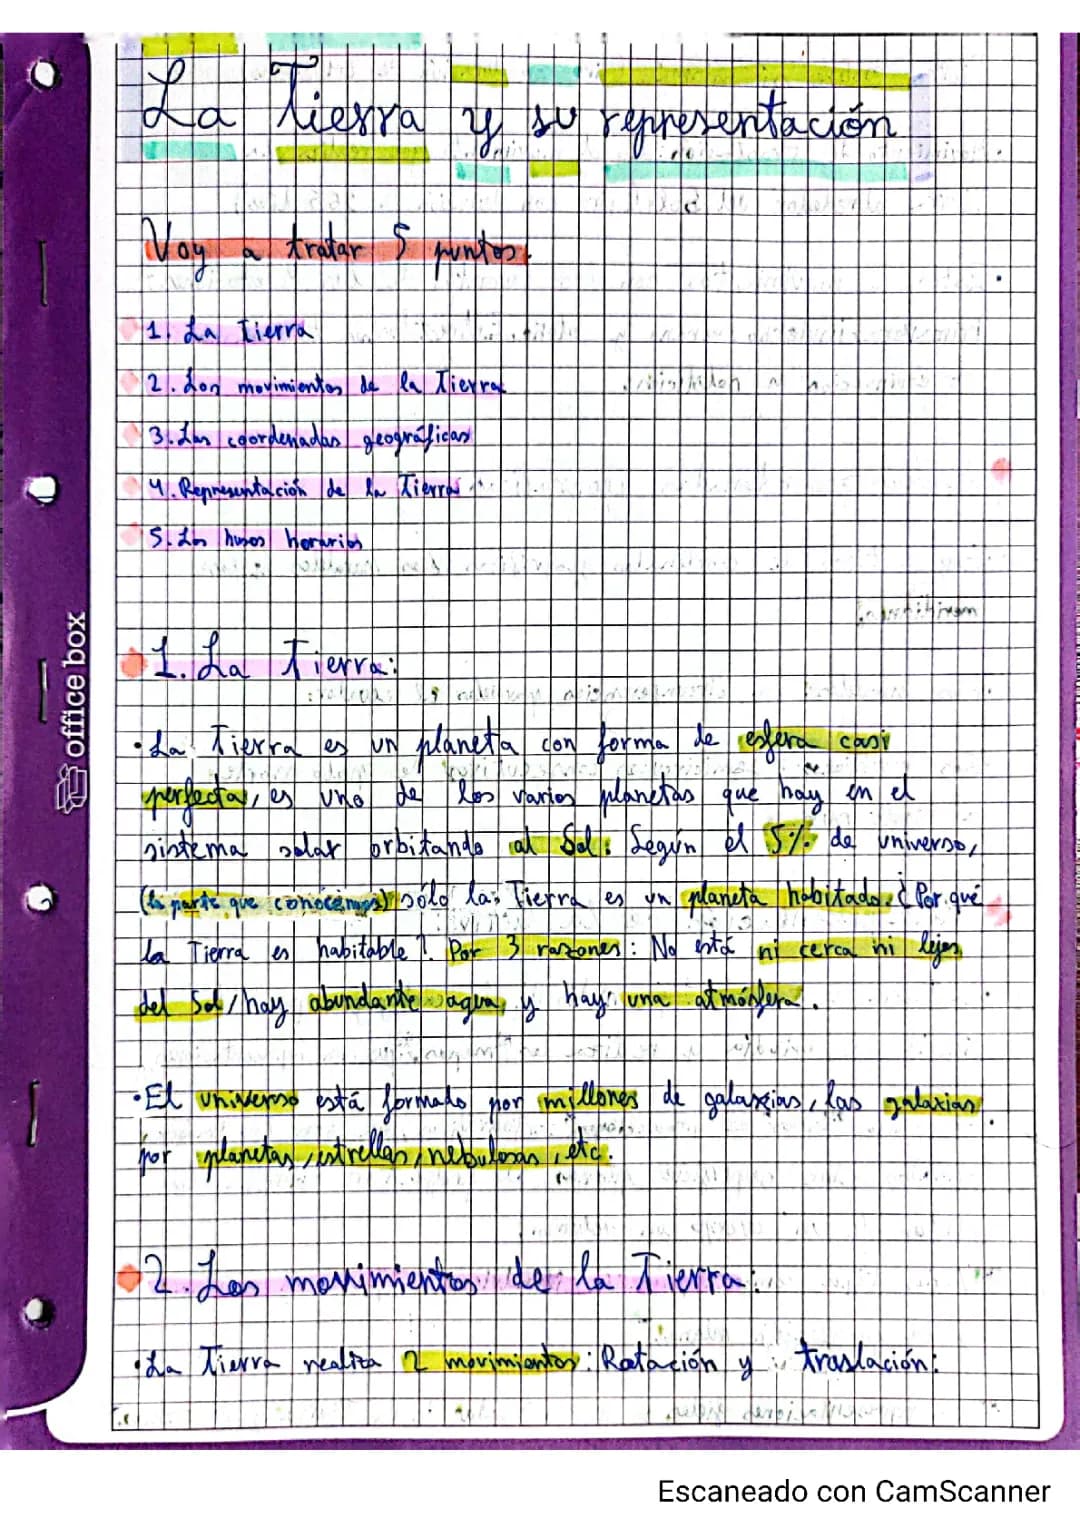 La Tierra y su representación
Voy a tratar 5 puntos.
1. La Tierra
2. Los movimientos de la Tierra
3. Las coordenadas geográficas
4. Representación de la Tierra
5. Los husos horarios
office box
1. La Tierra:
· La Tierra es un planeta con forma de esfera casi
perfecta, es uno de los varios planetas que hay en el
sistema solar orbitando al Sol. Según el 5% de universo,
(la parte que conocemos) sólo la Tierra es un planeta habitado. ¿Por qué
la Tierra es habitable? Por 3 razones: No está ni cerca ni lejos
del Sol, hay abundante agua, y hay una atmósfera.
· El universo está formado por millones de galaxias, las galaxias
por planetas, estrellas, nebulosas, etc.
2. Los movimientos de la Tierra:
· La Tierra realiza 2 movimientos: Rotación y traslación:
Escaneado con CamScanner